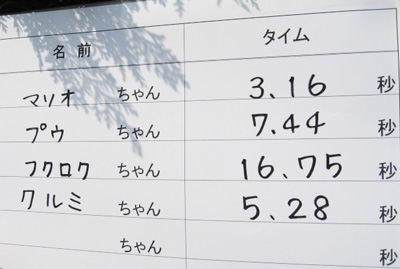 名前 タイム
マリオ ちゃん 3.16 秒
プウ ちゃん 7.44 秒
フクロク ちゃん 16.75 秒
クルミ ちゃん 5.28 秒
ちゃん 秒